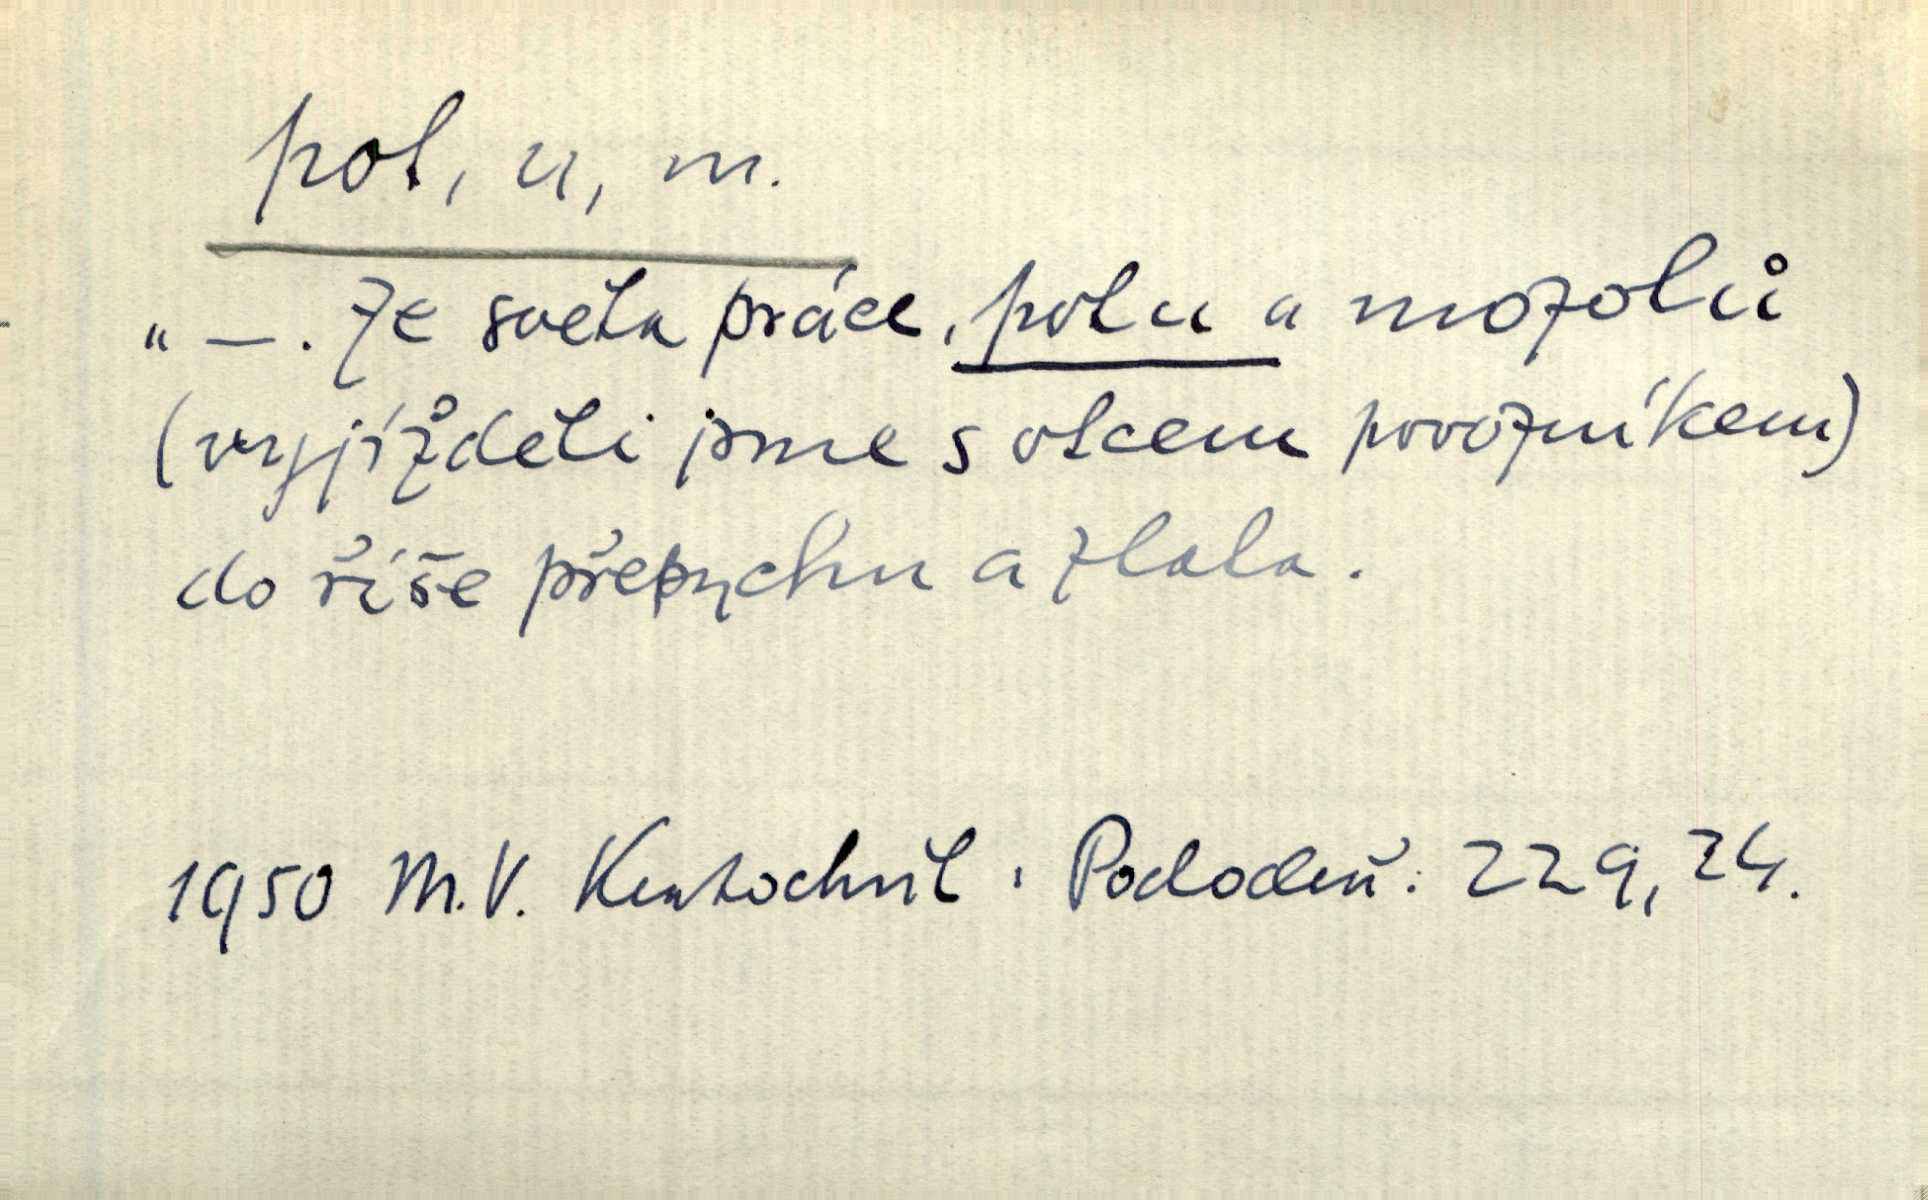 pot, u, m.
„—. Ze světa práce, potu a mozolů
(vyjížděli jsme s otcem povozníkem)
do říše přepychu a zlata.
1950 M. V. Kratochvíl: Pochodeň: 229, 24.